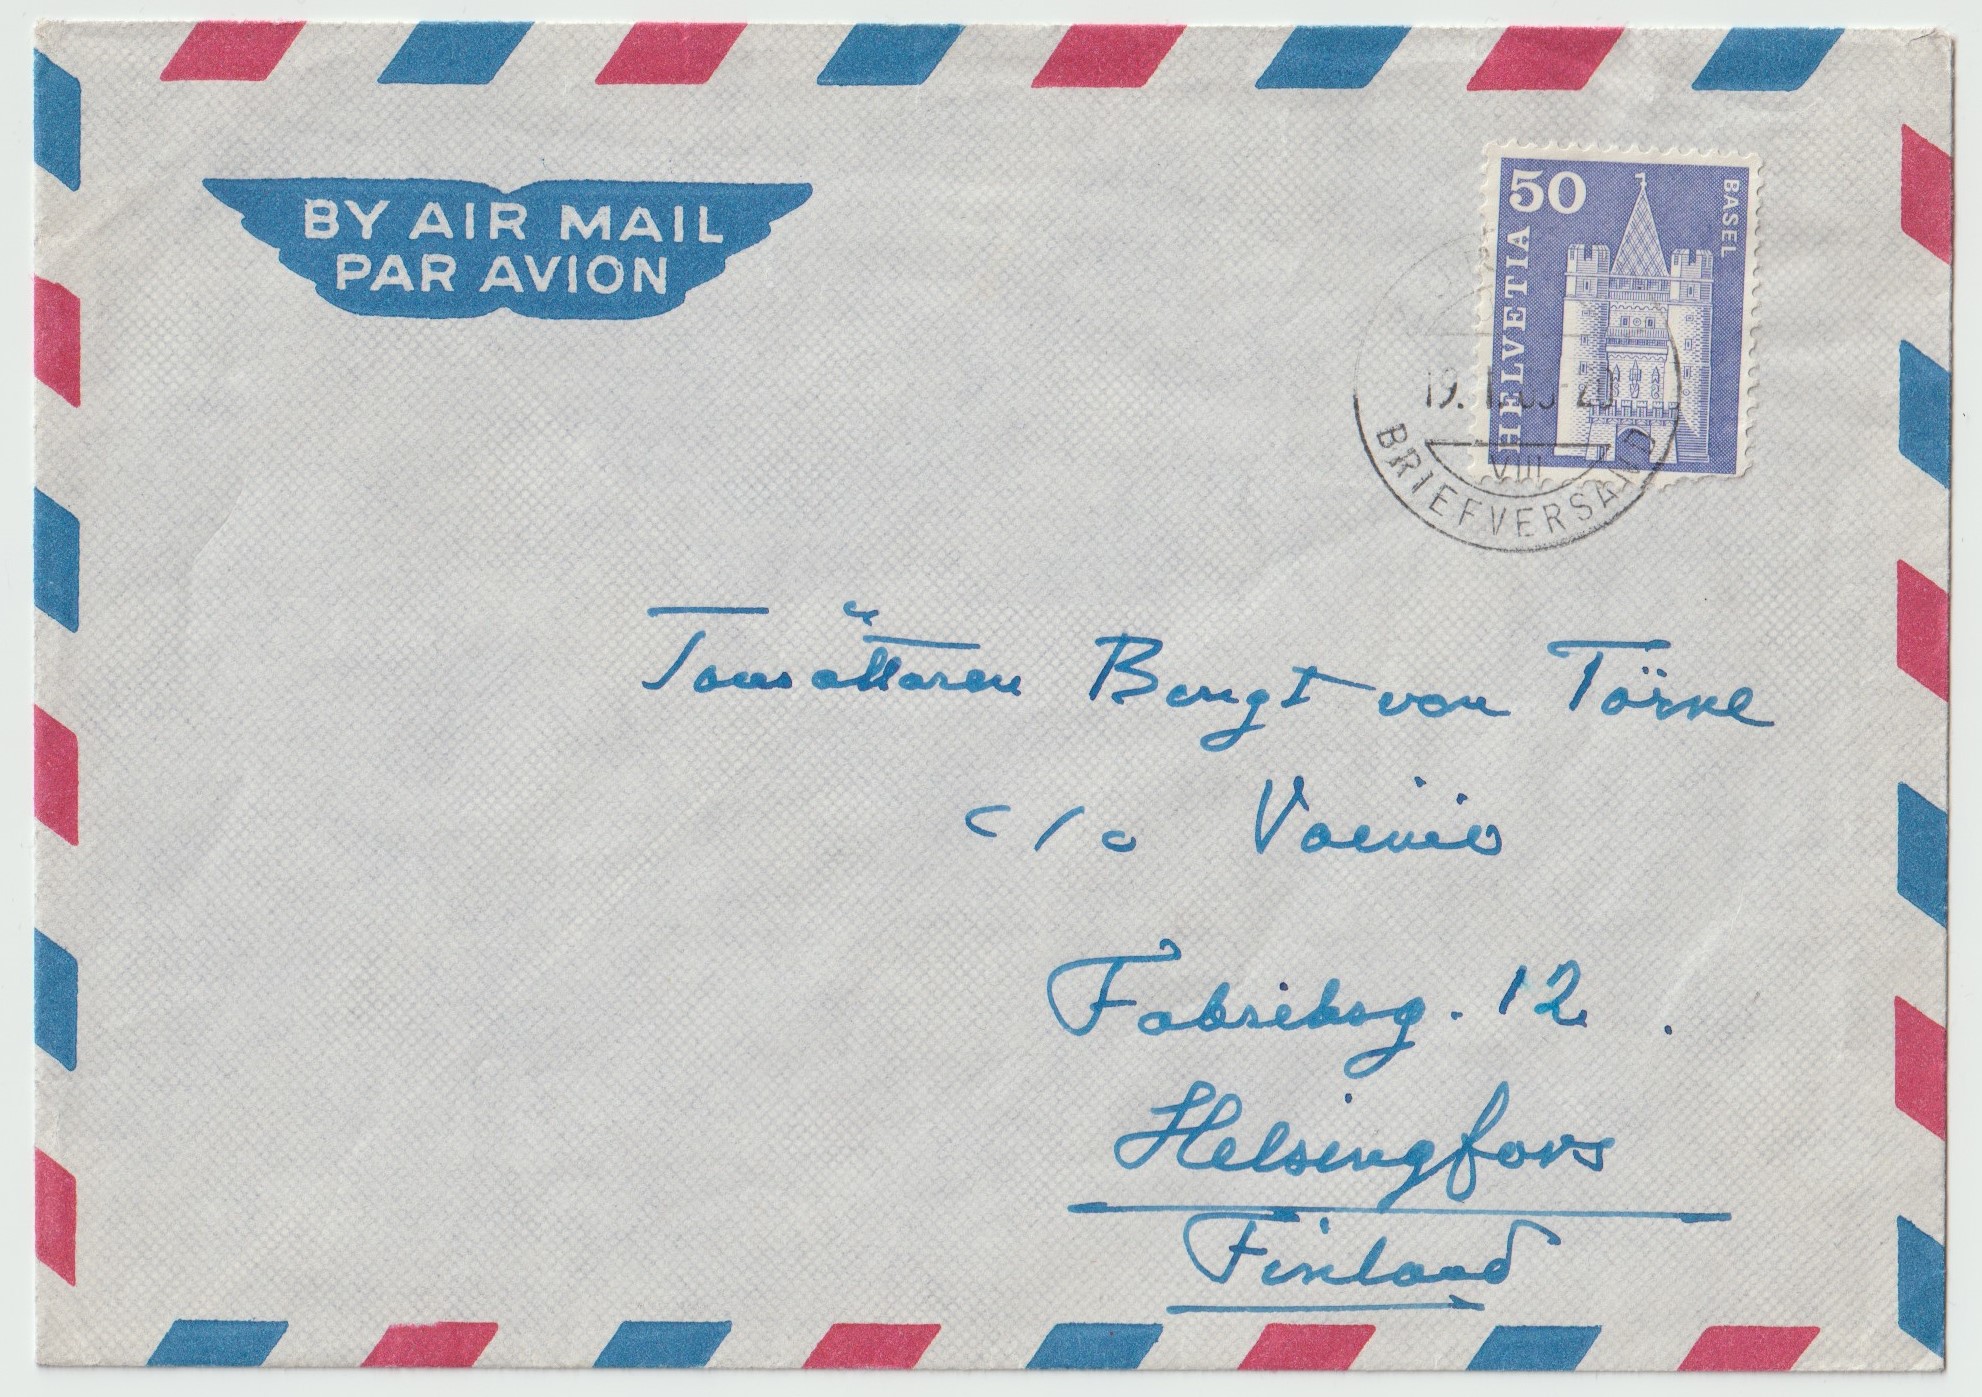 BY AIR MAIL
PAR AVION
50
HELVETIA
BASEL
19.
VIII
BRIEFVERSAND
Tonsättaren Bengt von Törne
c/o Vainio
Fabriksg. 12.
Helsingfors
Finland